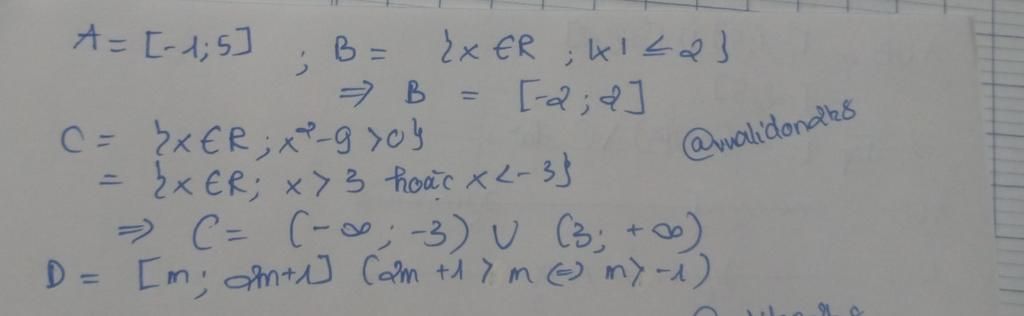 A = [-1;5] ; B = {x ∈ R ; |x| ≤ 2}
⇒ B = [-2; 2]
C = {x ∈ R ; x² - 9 > 0}
= {x ∈ R; x > 3 hoặc x < -3}
@walidond2k8
⇒ C = (-∞; -3) ∪ (3; +∞)
D = [m; 2m+1] (2m+1 > m ⇔ m > -1)